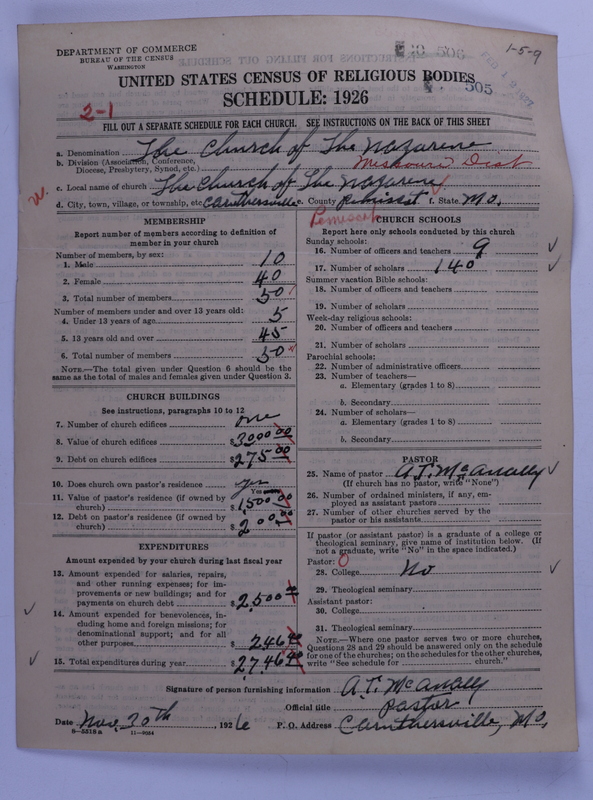 DEPARTMENT OF COMMERCE
BUREAU OF THE CENSUS
WASHINGTON
1-5-9
505
UNITED STATES CENSUS OF RELIGIOUS BODIES
SCHEDULE: 1926
2-1
FILL OUT A SEPARATE SCHEDULE FOR EACH CHURCH. SEE INSTRUCTIONS ON THE BACK OF THIS SHEET
a. Denomination The Church of The Nazarene
b. Division (Association, Conference,
Diocese, Presbytery, Synod, etc.) Missouri Dist
c. Local name of church The Church of The Nazarene
d. City, town, village, or township, etc. Caruthersville e. County Pemisset f. State Mo.
Pemiscot
MEMBERSHIP
Report number of members according to definition of
member in your church
Number of members, by sex:
1. Male 10
2. Female 40
3. Total number of members 50
Number of members under and over 13 years old:
4. Under 13 years of age 5
5. 13 years old and over 45
6. Total number of members 50
NOTE.—The total given under Question 6 should be the
same as the total of males and females given under Question 3.
CHURCH BUILDINGS
See instructions, paragraphs 10 to 12
7. Number of church edifices one
8. Value of church edifices $3000.00
9. Debt on church edifices $275.00
10. Does church own pastor's residence yes
11. Value of pastor's residence (if owned by
church) $1,500.00
12. Debt on pastor's residence (if owned by
church) $200.00
EXPENDITURES
Amount expended by your church during last fiscal year
13. Amount expended for salaries, repairs,
and other running expenses; for im-
provements or new buildings; and for
payments on church debt $2,500.00
14. Amount expended for benevolences, in-
cluding home and foreign missions; for
denominational support; and for all
other purposes $246.40
15. Total expenditures during year $2,746.40
CHURCH SCHOOLS
Report here only schools conducted by this church
Sunday schools:
16. Number of officers and teachers 9
17. Number of scholars 140
Summer vacation Bible schools:
18. Number of officers and teachers
19. Number of scholars
Week-day religious schools:
20. Number of officers and teachers
21. Number of scholars
Parochial schools:
22. Number of administrative officers
23. Number of teachers—
a. Elementary (grades 1 to 8)
b. Secondary
24. Number of scholars—
a. Elementary (grades 1 to 8)
b. Secondary
PASTOR
25. Name of pastor A.T. McAnally
(If church has no pastor, write "None")
26. Number of ordained ministers, if any, em-
ployed as assistant pastors
27. Number of other churches served by the
pastor or his assistants
If pastor (or assistant pastor) is a graduate of a college or
theological seminary, give name of institution below. (If
not a graduate, write "No" in the space indicated.)
Pastor: 0
28. College No
29. Theological seminary
Assistant pastor:
30. College
31. Theological seminary
NOTE.—Where one pastor serves two or more churches,
Questions 28 and 29 should be answered only on the schedule
for one of the churches; on the schedules for the other churches,
write "See schedule for church."
Signature of person furnishing information A.T. McAnally
Official title Pastor
Date Nov. 30th, 1926 P. O. Address Caruthersville, Mo.
8-5518a 11-9034